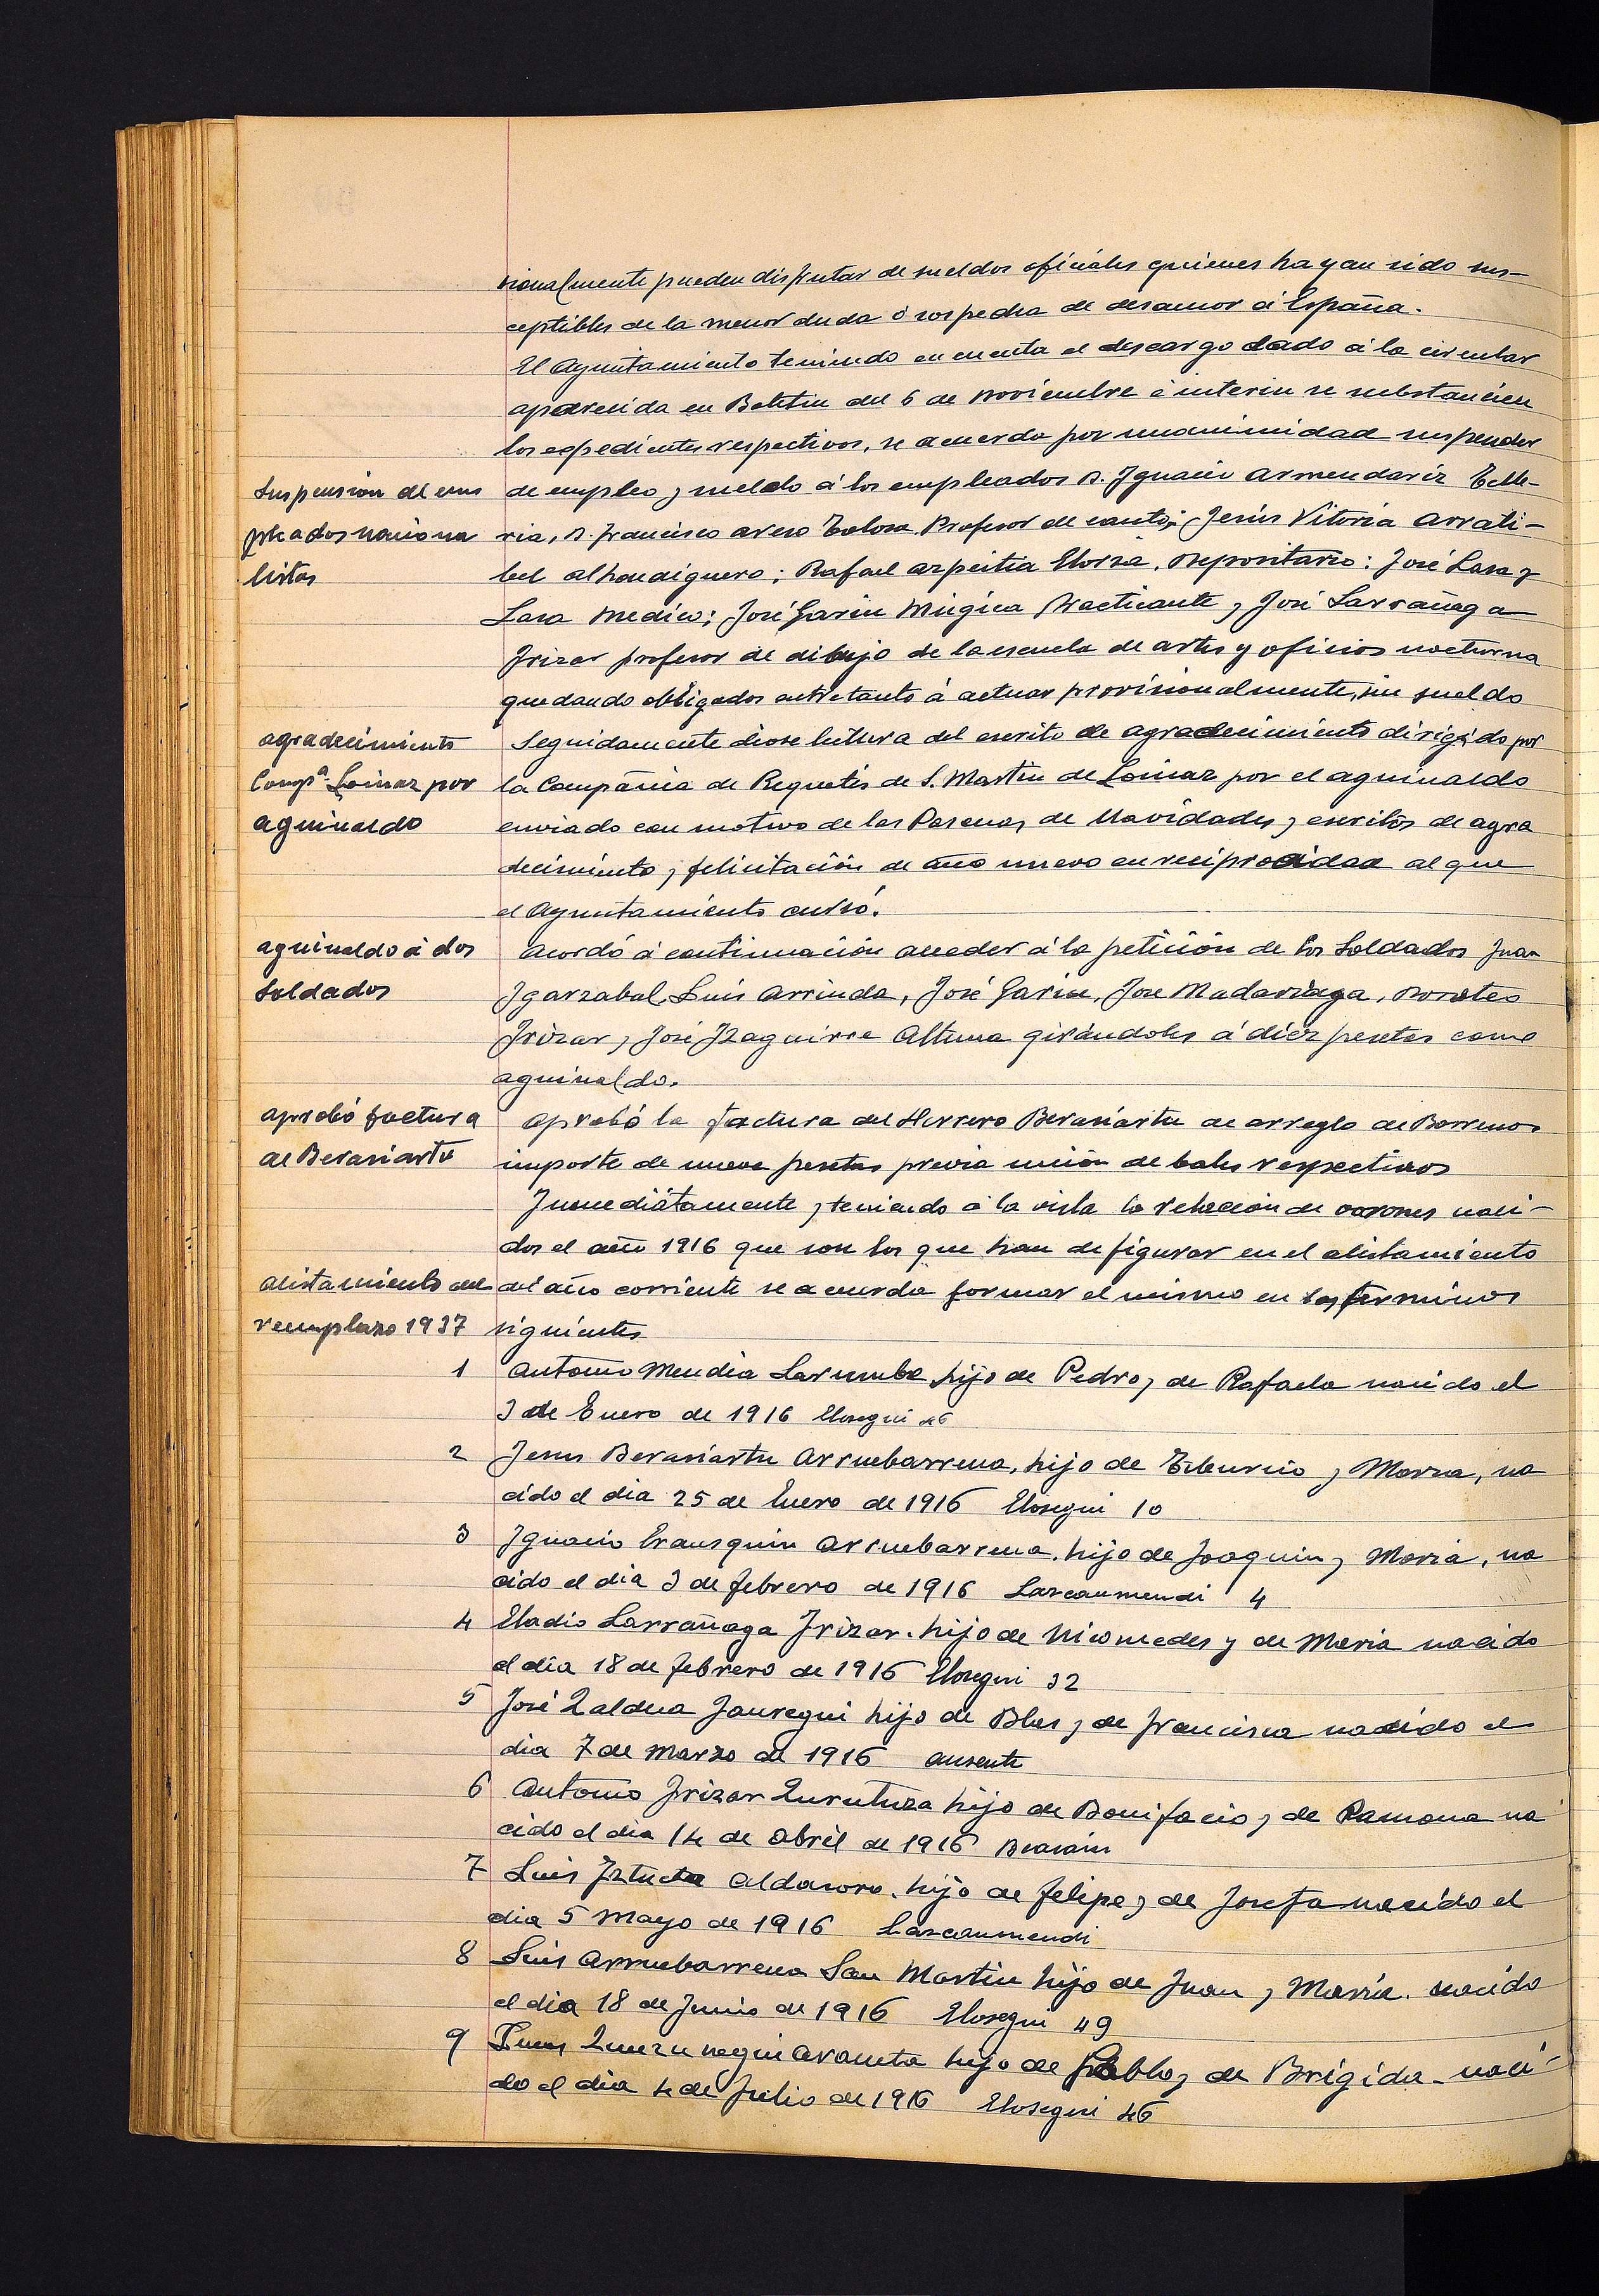 sionalmente pueden disfrutar de sueldos oficiales quienes hayan sido sus-
ceptibles de la menor duda ó sospecha de desamor á España.
El Ayuntamiento teniendo en cuenta el descargo dado á la circular
aparecida en Boletin del 6 de noviembre é interin se substancien
los expedientes respectivos, se acuerda por unanimidad suspender
Suspension de em
de empleo y sueldo á los empleados D. Ignacio Armendariz Telle-
pleados naciona
ria, D. Francisco Tolosa Profesor de canto; Jesús Vitoria Arrati-
listas
bel alhondiguero; Rafael Azpeitia Elorza, Depositario: José Lasa y
Lasa Medico; José Garin Mugica Practicante y José Larrañaga
Irizar profesor de dibujo de la escuela de artes y oficios nocturna
quedando obligados entretanto á actuar provisionalmente, sin sueldo
agradecimiento
Seguidamente diose lectura del escrito de agradecimiento dirigido por
Compª Loinaz por
la Compañia de Requetés de S. Martin de Loinaz por el aguinaldo
aguinaldo
enviado con motivo de las Pascuas de Navidades y escritos de agra
decimiento y felicitación de año nuevo en reciprocidad al que
el Ayuntamiento cursó.
aguinaldo á dos
Acordó á continuación acceder á la petición de los Soldados Juan
Soldados
Igarzabal, Luis Arrinda, José Garin, Jose Madariaga, Doroteo
Irizar y José Izaguirre Altuna girándoles á diez pesetas como
aguinaldo.
aprobó factura
Aprobó la factura del Herrero Berasiartu de arreglo de Barrenos
de Berasiartu
importe de nueve pesetas previa unión de bales respectivos
Inmediátamente y teniendo á la vista la relacion de varones naci-
dos el año 1916 que son los que han de figurar en el alistamiento
alistamiento del
del año corriente se acuerda formar el mismo en los términos
reemplazo 1937
siguientes
1 Antonio Mendia Larumbe hijo de Pedro y de Rafaela nacido el
3 de Enero de 1916 Elosegui 46
2 Jesus Berasiartu Arruebarrena, hijo de Tiburcio y Maria, na
cido el dia 25 de Enero de 1916 Elosegui 10
3 Ignacio Erausquin Arruebarrena, hijo de Joaquin y Maria, na
cido el dia 3 de febrero de 1916 Lazcaumendi 4
4 Eladio Larrañaga Irizar. hijo de Nicomedes y de Maria nacido
el dia 18 de febrero de 1916 Elosegui 32
5 José Zaldua Jauregui hijo de Blas y de Francisca nacido el
dia 7 de Marzo de 1916 ausente
6 Antonio Irizar Zurutuza hijo de Bonifacio y de Ramona na
cido el dia 14 de Abril de 1916 Beasain
7 Luis Iztueta Aldasoro. hijo de Felipe y de Josefa nacido el
dia 5 Mayo de 1916 Lazcaumendi
8 Luis Arruebarrena San Martin hijo de Juan y Maria. nacido
el dia 18 de Junio de 1916 Elosegui 49
9 Zunzunegui Araneta hijo de Pablo y de Brigida naci-
do el dia 4 de Julio de 1916 Elosegui 46